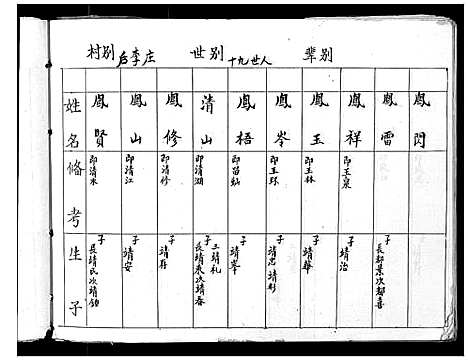 村别 后李庄 世别 十九世人 辈别
姓名 鳳賢 鳳山 鳳修 清山 鳳梧 鳳岺 鳳玉 鳳祥 鳳雷 鳳閃
備考 即清水 即清江 即清修 即清湖 即玉珠 即玉林 即玉泉
生子 子 長靖氏次靖 子 靖安 子 靖存 子 三靖札 長靖來次靖春 子 靖峯 子 靖忠 靖彭 子 靖華 子 靖治 子 長郝景次郝喜